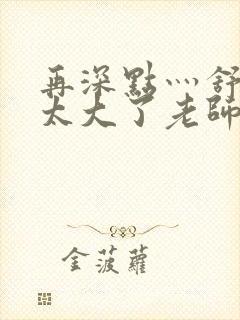 再深點灬舒
太大了老師
金菠蘿